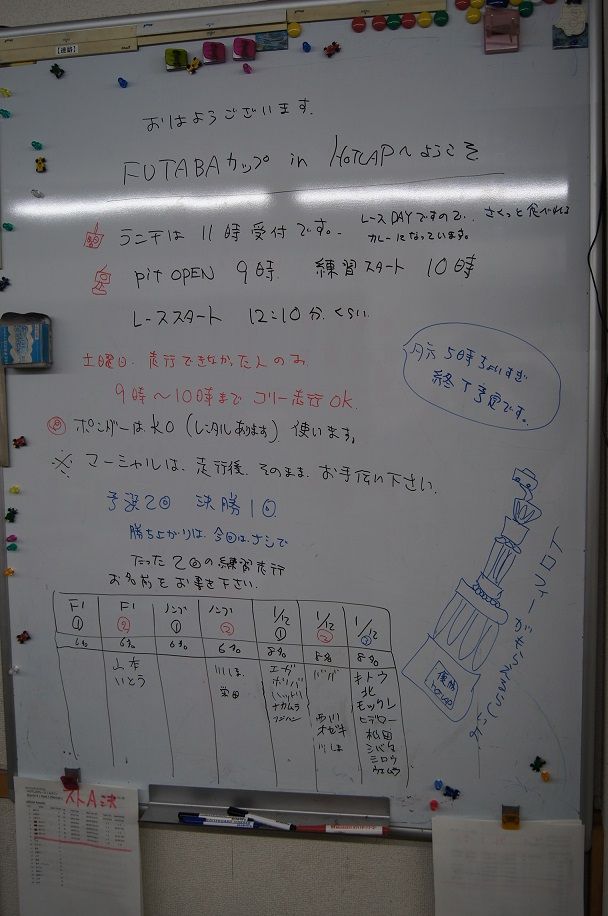 【連絡】
おはようございます.
FUTABAカップ in HOTLAPへようこそ
ランチは 11時受付です。 レースDAYですので、さくっと食べれる
カレーになっています。
pit OPEN 9時. 練習スタート 10時
レーススタート 12:10分.くらい.
土曜日.走行できなかった人のみ
9時〜10時まで フリー走行OK.
ポンダーはKO (レンタルあります) 使います。
※ マーシャルは、走行後、そのまま、お手伝い下さい.
5時ちょいすぎ
終了予定です。
予選2回 決勝1回
勝ち上がりは、今回は、ナシで
たった2回の練習走行
お名前をお書き下さい.
F1 ① F1 ② ノンプ ① ノンプ ② 1/12 ① 1/12 ② 1/12 ③
6分 6分 6分 6分 8分 8分 8分
山本
いとう
川しま
栄田
ナカムラ
ババ
あらい
オゼキ
川しま
キトウ
北
モックン
ヒデロー
松田
シバタ
ミロウ
ウエムラ
トロフィーがもらえるらしいよ.
優勝
HOTLAP
ストA決